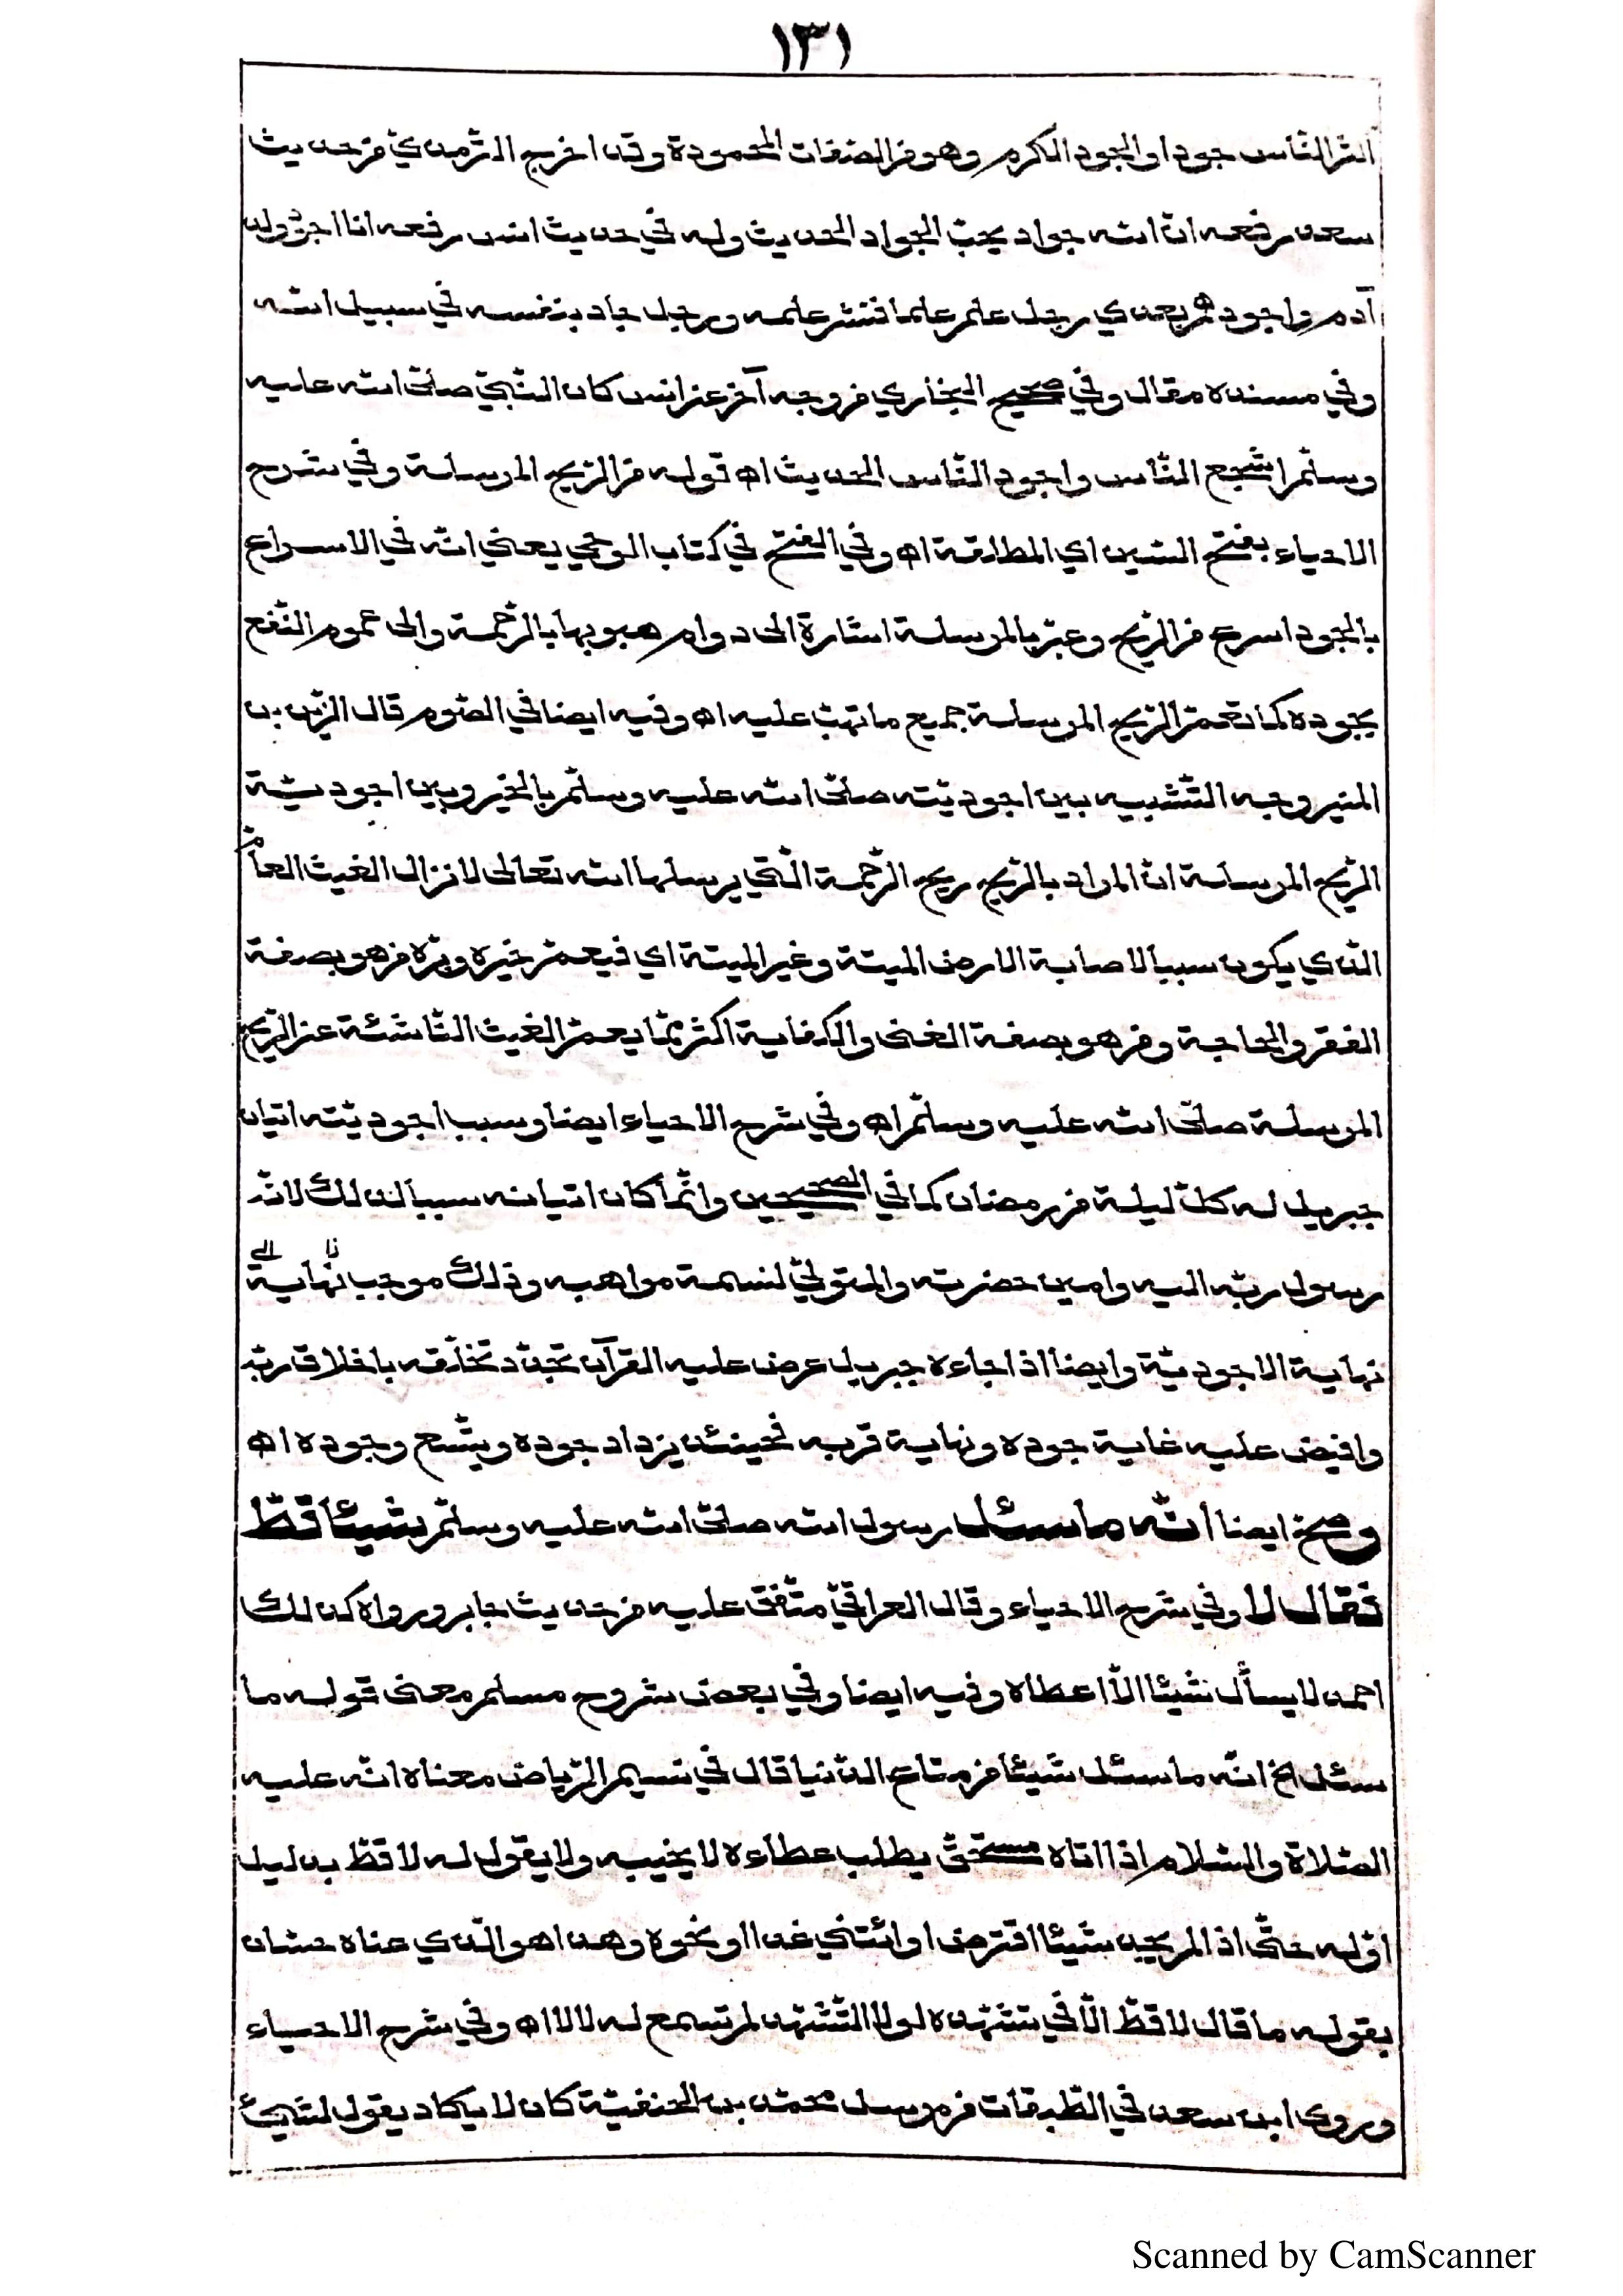 ١٣١
اكثر النّاس جودا والجود الكرم وهو من الصّفات المحمودة وقد اخرج الترّمذيّ من حديث
سعد رفعه انّ الله جواد يحبّ الجواد الحديث وله في حديث انس رفعه انا اجود ولد
آدم واجودهم بعدي رجل علم علما فنشر علمه ورجل جاد بنفسه في سبيل الله
وفي مسنده مقال وفي صحيح البخاري من وجه آخر عن انس كان النّبيّ صلّى الله عليه
وسلّم اشجع النّاس واجود النّاس الحديث اه قوله من الرّيح المرسلة وفي شرح
الاحياء بفتح السّين اي المطلقة اه وفي الفتح في كتاب الوحي يعني انّه في الاسراع
بالجود اسرع من الرّيح وعبّر بالمرسلة اشارة الى دوام هبوبها بالرّحمة والى عموم النّفع
بجوده كما تعمّ الرّيح المرسلة جميع ما تهبّ عليه اه وفيه ايضا في الصّوم قال الزّين بن
المنير وجه التّشبيه بين اجوديّته صلّى الله عليه وسلّم بالخير وبين اجوديّة
الرّيح المرسلة انّ المراد بالرّيح ريح الرّحمة الّتي يرسلها الله تعالى لانزال الغيث العامّ
الّذي يكون سببا لاصابة الارض الميتة وغير الميتة اي فيعمّ خيره وبرّه من هو بصفة
الفقر والحاجة ومن هو بصفة الغنى والكفاية اكثر ممّا يعمّ الغيث النّاشئة عن الرّيح
المرسلة صلّى الله عليه وسلّم اه وفي شرح الاحياء ايضا وسبب اجوديّته اتيان
جبريل له كلّ ليلة من رمضان كما في الصّحيحين وانّما كان اتيانه سببا لذلك لانّه
رسول ربّه اليه وامين حضرته والمتولّي لنسمة مواهبه وذلك موجب نهاية
نهاية الاجوديّة وايضا اذا جاءه جبريل عرض عليه القرآن تجدّد تخلّقه باخلاق ربّه
وافيض عليه غاية جوده ونهاية قربه فحينئذ يزداد جوده ويتّسع وجوده اه
وصحّ ايضا انّه ما سئل رسول الله صلّى الله عليه وسلّم شيئا قطّ
فقال لا وفي شرح الاحياء وقال العراقيّ متّفق عليه من حديث جابر ورواه كذلك
احمد لا يسأل شيئا الاّ اعطاه وفيه ايضا وفي بعض شروح مسلم معنى قوله ما
سئل الخ انّه ما سئل شيئا من متاع الدّنيا قال في نسيم الرّياض معناه انّه عليه
الصّلاة والسّلام اذا اتاه مستحقّ يطلب عطاءه لا يخيبه ولا يقول له لا قطّ بدليل
اوّله حتّى اذا لم يجد شيئا اقترض او ائتني غدا او نحوه وهذا هو الّذي عناه حسّان
بقوله ما قال لا قطّ الاّ في تشهّده لولا التّشهّد لم تسمع له لا لا اه وفي شرح الاحياء
وروى ابن سعد في الطّبقات من مرسل محمّد بن الحنفيّة كان لا يكاد يقول لشيئ
Scanned by CamScanner